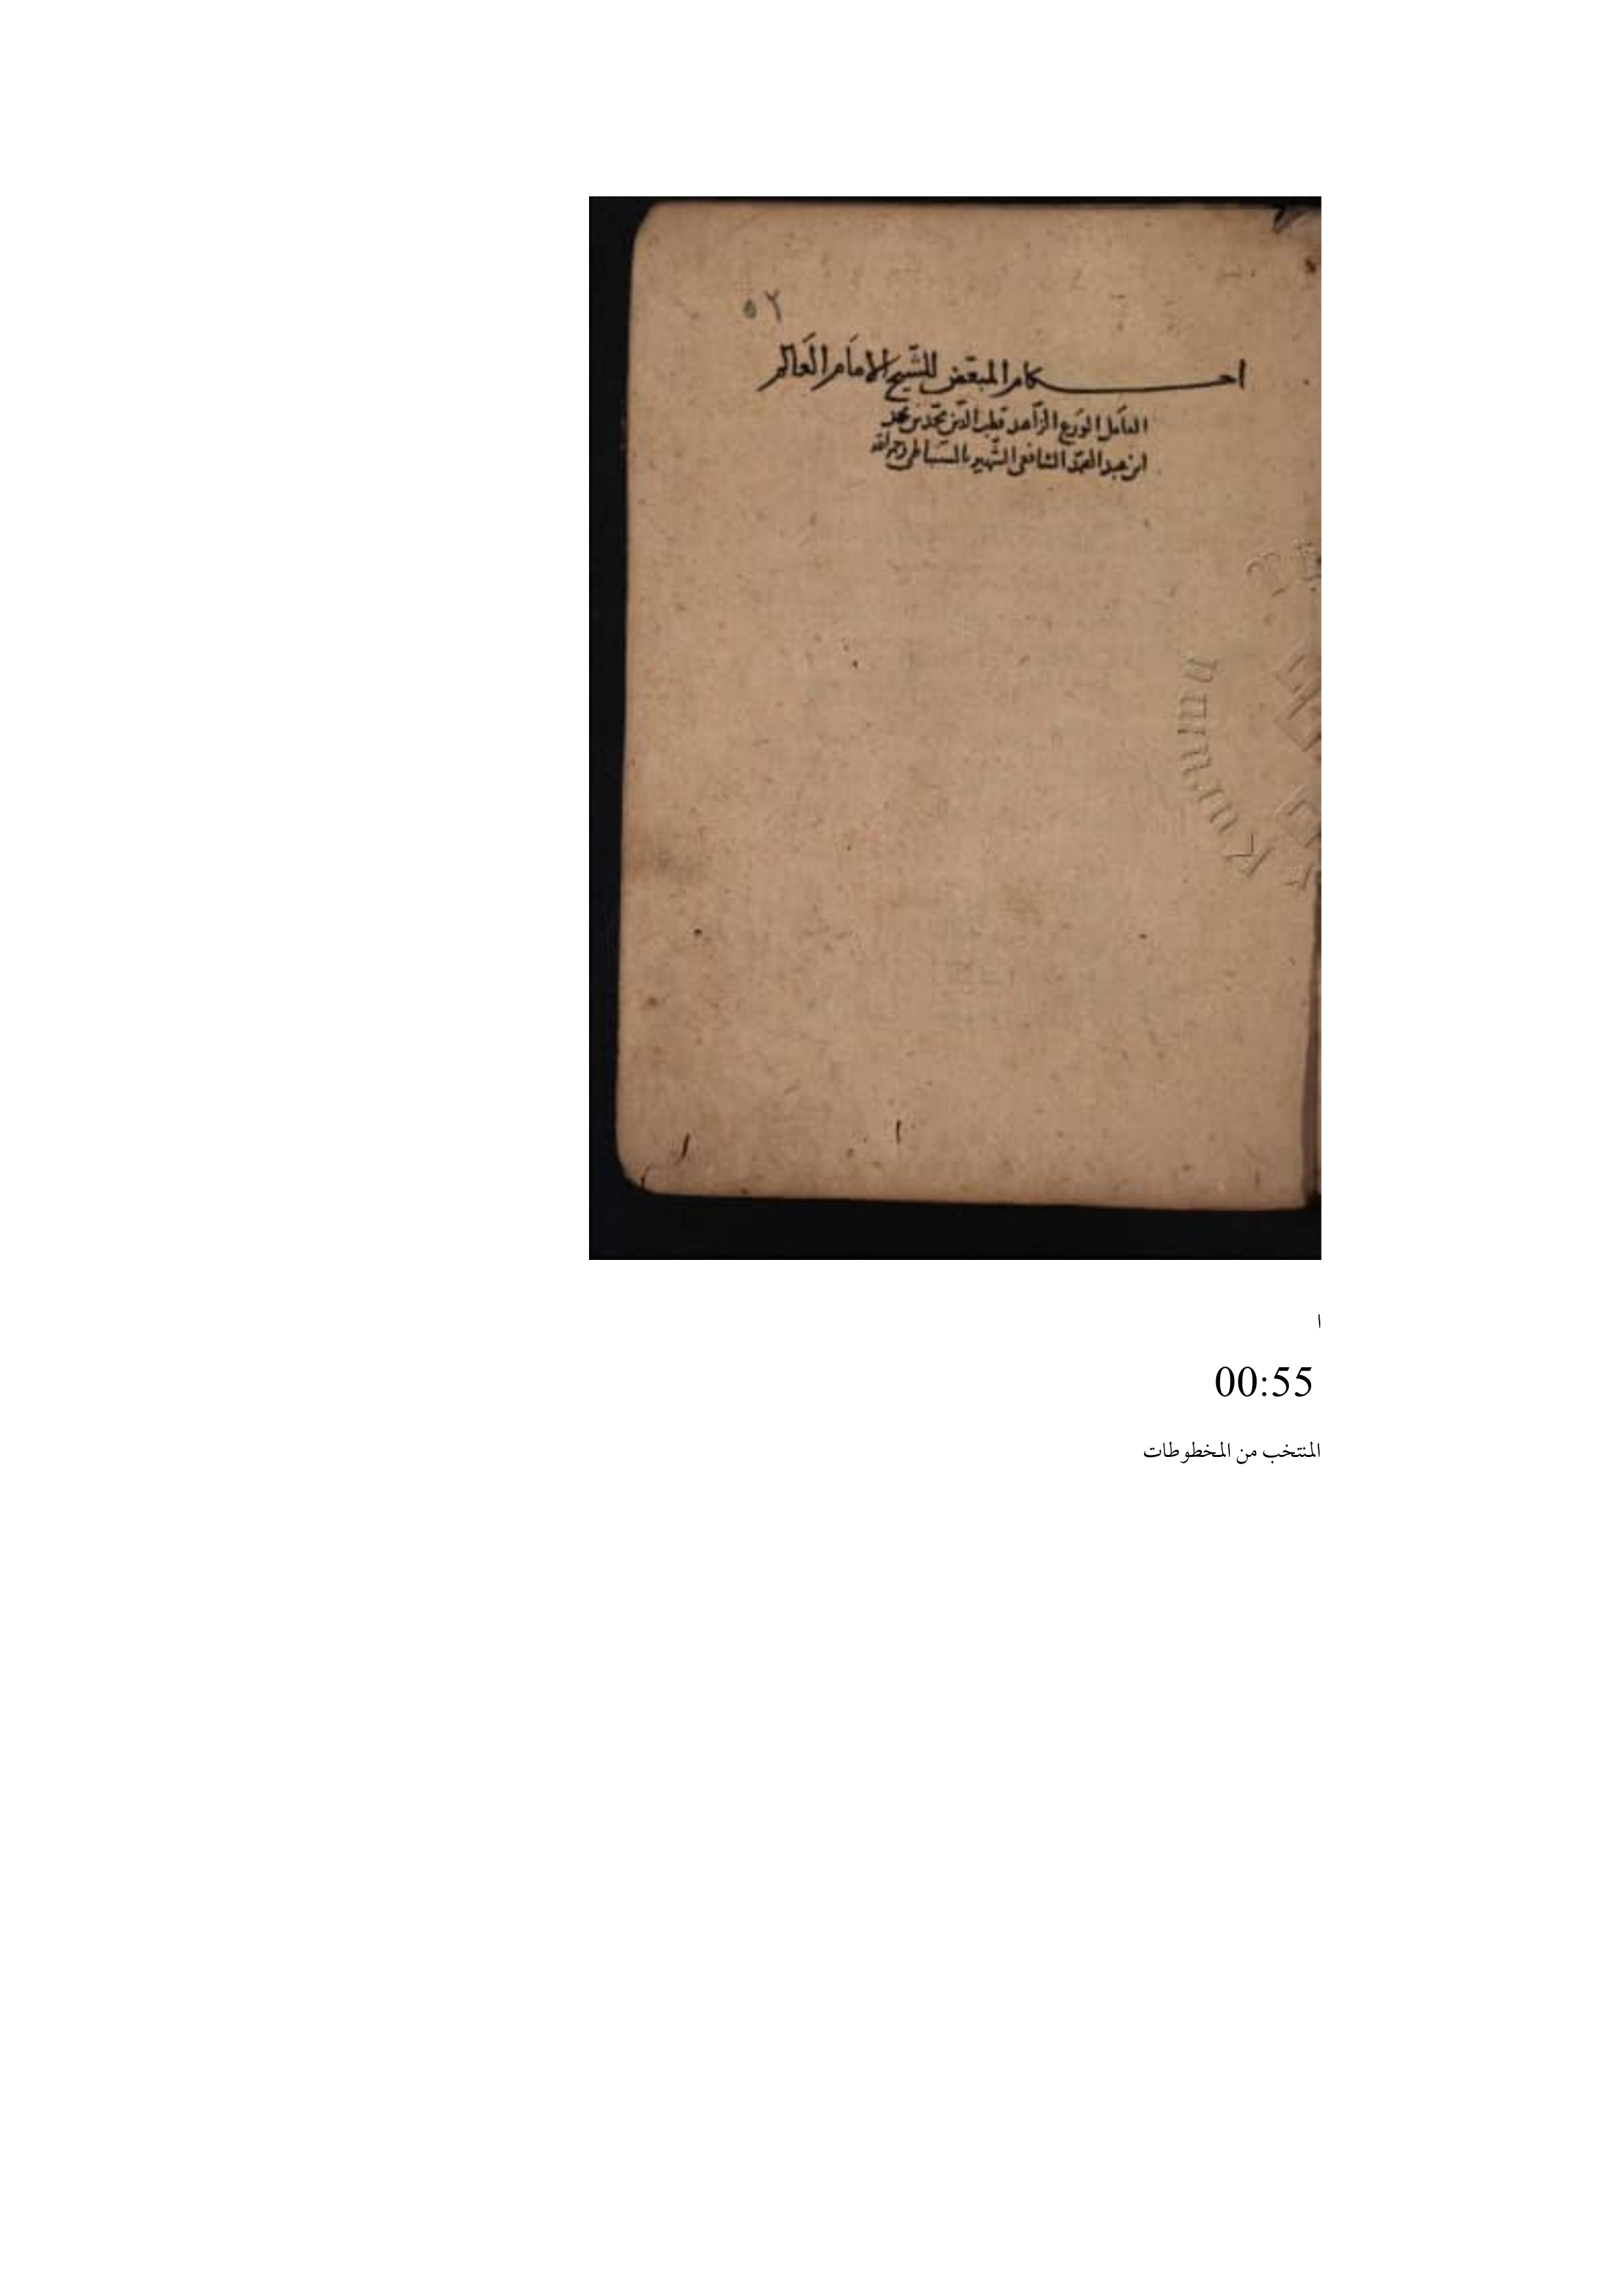 ٥٢
احكام المبعّض للشّيخ الامَام العَالم
العَامل الورع الزّاهد قطب الدّين محمّد بن محمد
ابن عبد الصمد الشافعى الشّهير بالسنباطى رحمه الله
Kurumu
ا
00:55
المنتخب من المخطوطات